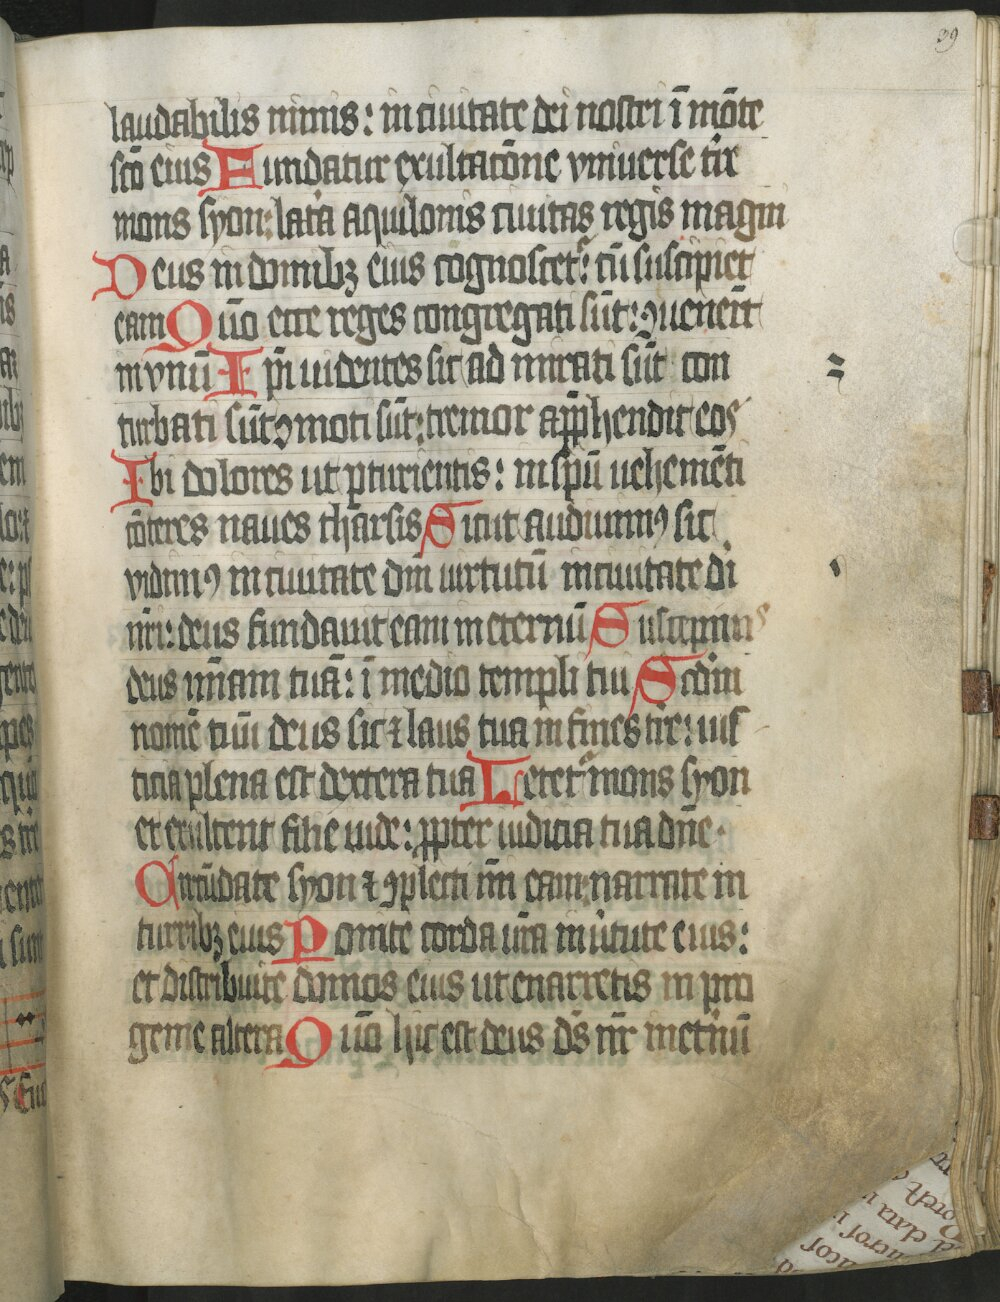 39
laudabilis nimis: in ciuitate dei nostri ī mōte
scō eius Fundatur exultatōne vniuerse tr̄e
mons syon: lat̄a aquilonis ciuitas regis magni
Deus in domibꝫ eius cognoscet᷑: cū suscipiet
eam Qūo ecce reges congregati sūt: ꝯuenerūt
in vnū Ip̄i uidentes sic ad mirati sūt con
turbati sūt ꝯmoti sūt: tremor app̄hendit eos
Ibi dolores ut ꝑturientis: in sp̄u uehemēti
cōteres naues tharsis Sicut audiuimꝰ sic
vidimꝰ in ciuitate dn̄i uirtutū in ciuitate di
nr̄i: deus fundauit eam in eternū Suscepimꝰ
deus mīam tuā: ī medio templi tui Scdm
nomē tuū deus sic ⁊ laus tua in fines tr̄e: ius
ticia plena est dextera tua Letet᷑ mons syon
et exultent filie iude: ꝓpter iudicia tua dn̄e.
Circūdate syon ⁊ ꝯplecti mī eam: narrate in
turribꝫ eius Ponite corda ur̄a in ūtute eius:
et distribuite domos eius ut enarretis in pro
genie altera Qūo hic est deus ds̄ nr̄ in et̄nū